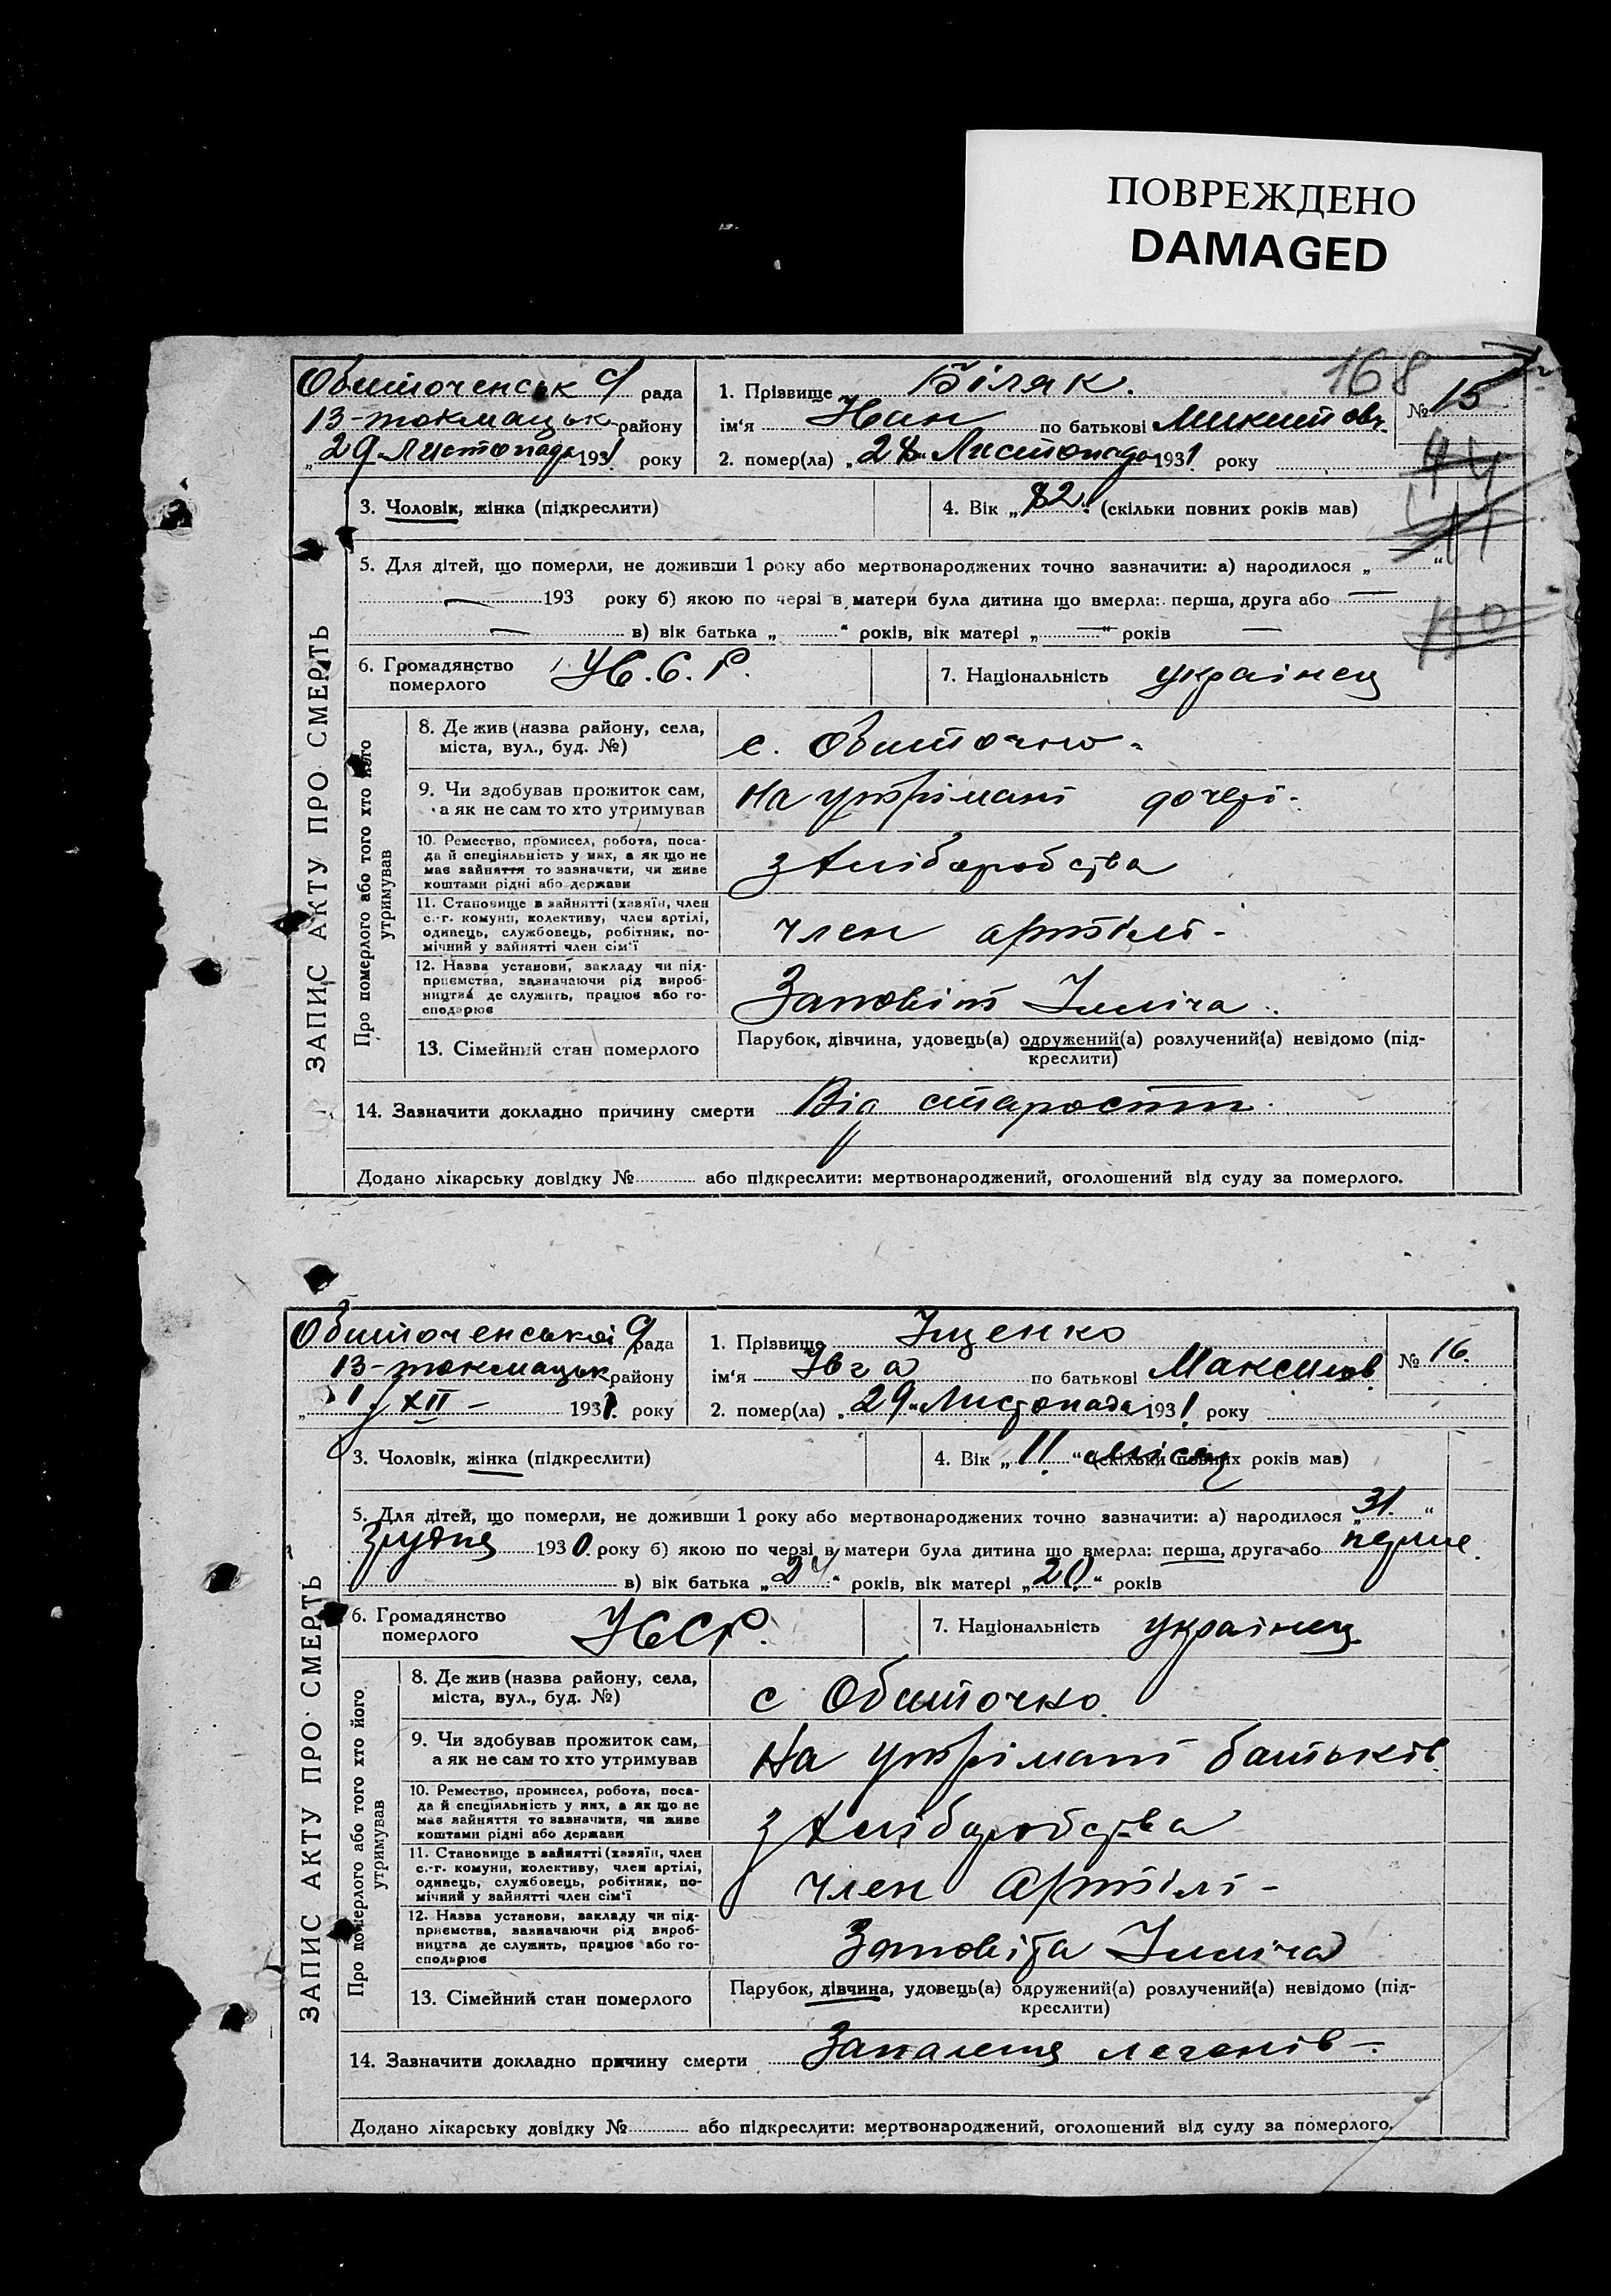 ПОВРЕЖДЕНО
DAMAGED
168
Обиточенськ рада
1. Прізвище Біляк.
№ 15
В-токмацьк району
ім'я Іван по батькові Микитов.
„29 Листопада 1931 року
2. помер(ла) „28" Листопада 1931 року
3. Чоловік, жінка (підкреслити)
4. Вік „82" (скільки повних років мав)
5. Для дітей, що померли, не доживши 1 року або мертвонароджених точно зазначити: а) народилося „ "
— 193 року б) якою по черзі в матери була дитина що вмерла: перша, друга або —
— в) вік батька „ " років, вік матері „—" років —
6. Громадянство померлого У.С.С.Р.
7. Національність українец
ЗАПИС АКТУ ПРО СМЕРТЬ
Про померлого або того хто його утримував
8. Де жив (назва району, села,
міста, вул., буд. №)
с. Обиточно-
9. Чи здобував прожиток сам,
а як не сам то хто утримував
На утрімані дочері-
10. Ремество, промисел, робота, поса-
да й спеціяльність у них, а як що не
має зайняття то зазначити, чи живе
коштами рідні або держави
з хліборобства
11. Становище в зайнятті (хазяїн, член
с.-г. комуни, колективу, член артілі,
одинець, службовець, робітник, по-
мічний у зайнятті член сім'ї
член артілі-
12. Назва установи, закладу чи під-
приємства, зазначаючи рід вироб-
ництва де служить, працює або го-
сподарює
Заповіт Ілліча.
13. Сімейний стан померлого
Парубок, дівчина, удовець(а) одружений(а) розлучений(а) невідомо (під-
креслити)
14. Зазначити докладно причину смерти Від старости.
Додано лікарську довідку № або підкреслити: мертвонароджений, оголошений від суду за померлого.
Обиточенської рада
1. Прізвище Іщенко
№ 16.
В-токмацьк району
ім'я Івга по батькові Максимов.
„1/XII- 1931. року
2. помер(ла) „29" Листопада 1931. року
3. Чоловік, жінка (підкреслити)
4. Вік „11." місяц (скільки повних років мав)
5. Для дітей, що померли, не доживши 1 року або мертвонароджених точно зазначити: а) народилося „31."
Грудня 1930. року б) якою по черзі в матери була дитина що вмерла: перша, друга або перше.
в) вік батька „24" років, вік матері „20." років
6. Громадянство померлого УССР.
7. Національність українец
ЗАПИС АКТУ ПРО СМЕРТЬ
Про померлого або того хто його утримував
8. Де жив (назва району, села,
міста, вул., буд. №)
с Обиточно.
9. Чи здобував прожиток сам,
а як не сам то хто утримував
На утрімані батьків.
10. Ремество, промисел, робота, поса-
да й спеціяльність у них, а як що не
має зайняття то зазначити, чи живе
коштами рідні або держави
з хліборобства
11. Становище в зайнятті (хазяїн, член
с.-г. комуни, колективу, член артілі,
одинець, службовець, робітник, по-
мічний у зайнятті член сім'ї
член артілі-
12. Назва установи, закладу чи під-
приємства, зазначаючи рід вироб-
ництва де служить, працює або го-
сподарює
Заповіта Ілліча
13. Сімейний стан померлого
Парубок, дівчина, удовець(а) одружений(а) розлучений(а) невідомо (під-
креслити)
14. Зазначити докладно причину смерти Запаленя легенів-.
Додано лікарську довідку № або підкреслити: мертвонароджений, оголошений від суду за померлого.